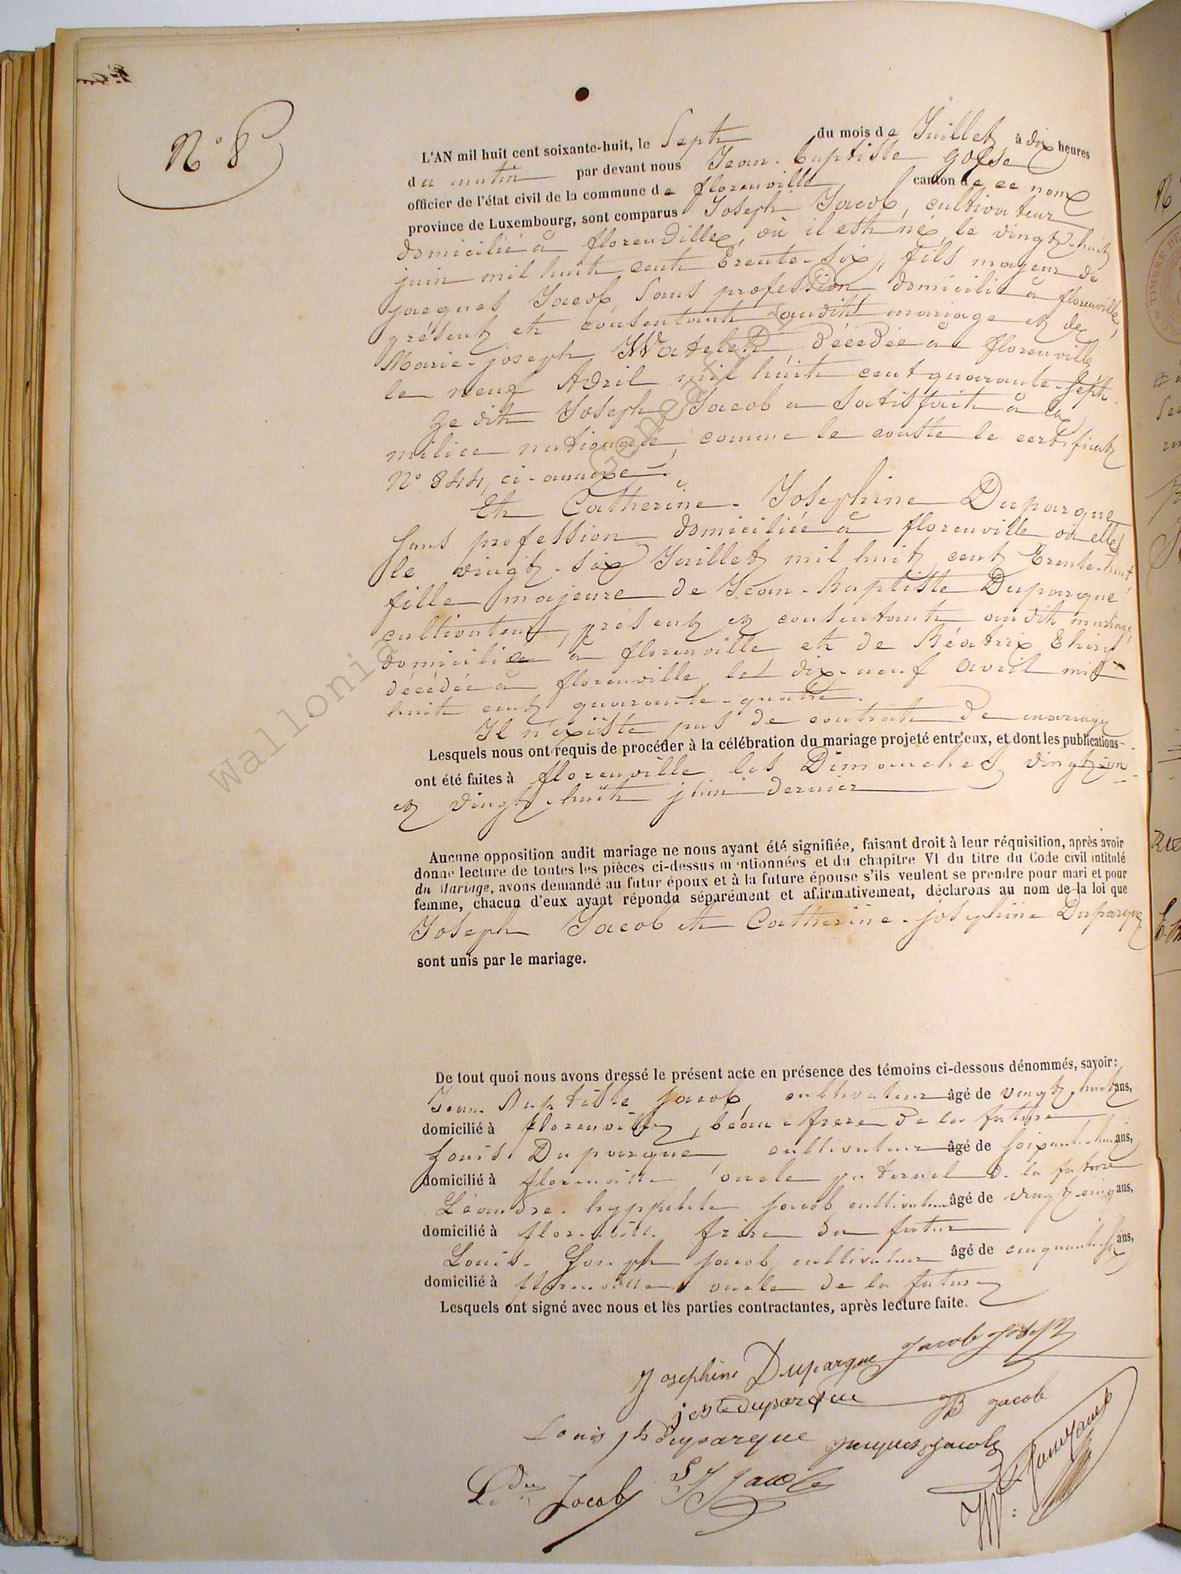 N° 8
L'AN mil huit cent soixante-huit, le Sept du mois de Juillet à dix heures
du matin par devant nous Jean-Baptiste
officier de l'état civil de la commune de florenville canton de ce nom
province de Luxembourg, sont comparus Joseph Jacob, cultivateur
domicilié à florenville, où il est né, le vingt-huit
juin mil huit cent trente-six, fils majeur de
jacques Jacob, sans profession domicilié à florenville,
présent et consentant audit mariage et de
Marie-joseph Watelet décédée à florenville
le neuf Avril mil huit cent quarante-sept.
Le dit Joseph Jacob a satisfait à la
milice nationale, comme le conste le certificat
N° 844, ci-annexé.
Et Catherine-Joséphine Duparque
sans profession domiciliée à florenville où elle
le vingt-six Juillet mil huit cent trente-huit
fille majeure de Jean-Baptiste Duparque
cultivateur, présent et consentant audit mariage,
domicilié à florenville et de Béatrix
décédée à florenville le dix-neuf avril mil
huit cent quarante-quatre.
Il n'existe pas de contrat de mariage
Lesquels nous ont requis de procéder à la célébration du mariage projeté entr'eux, et dont les publications
ont été faites à florenville les Dimanches vingt-un
et vingt-huit juin dernier
Aucune opposition audit mariage ne nous ayant été signifiée, faisant droit à leur réquisition, après avoir
donné lecture de toutes les pièces ci-dessus mentionnées et du chapitre VI du titre du Code civil intitulé
du Mariage, avons demandé au futur époux et à la future épouse s'ils veulent se prendre pour mari et pour
femme, chacun d'eux ayant répondu séparément et afirmativement, déclarons au nom de la loi que
Joseph Jacob et Catherine-joséphine Duparque
sont unis par le mariage.
De tout quoi nous avons dressé le présent acte en présence des témoins ci-dessous dénommés, savoir:
Jean Baptiste Jacob, cultivateur âgé de vingt-huit ans,
domicilié à florenville, beau frère de la future
Louis Duparque, cultivateur âgé de ans,
domicilié à florenville oncle paternel de la future
Léandre hyppolite jacob cultivateur âgé de vingt-cinq ans,
domicilié à florenville frère du futur
Louis-Joseph jacob, cultivateur âgé de ans,
domicilié à florenville oncle de la future
Lesquels ont signé avec nous et les parties contractantes, après lecture faite.
Josephine Duparque Jacob Joseph
j bste duparque JB jacob
Louis jh duparque jacques jacob
Ldre Jacob L J Jacob
Wallonia Genealogy